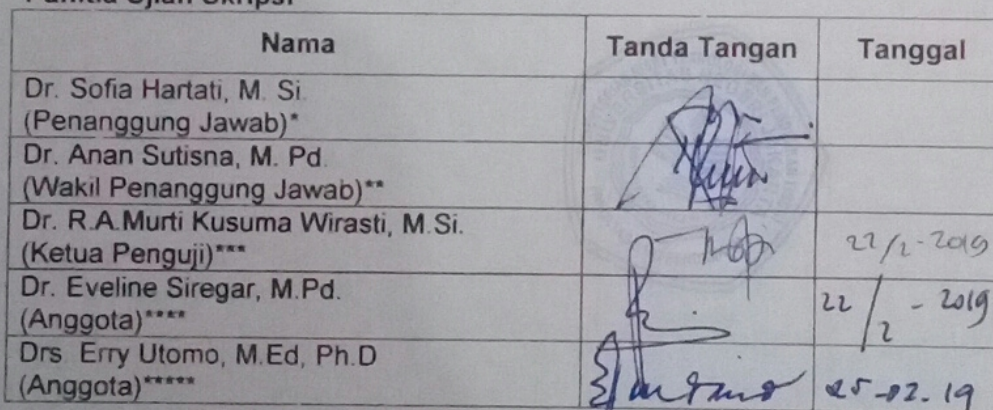 Panitia Ujian Skripsi
Nama Tanda Tangan Tanggal
Dr. Sofia Hartati, M. Si.
(Penanggung Jawab)*
Dr. Anan Sutisna, M. Pd.
(Wakil Penanggung Jawab)**
Dr. R.A.Murti Kusuma Wirasti, M.Si.
(Ketua Penguji)*** 22/2-2019
Dr. Eveline Siregar, M.Pd.
(Anggota)**** 22/2 - 2019
Drs. Erry Utomo, M.Ed, Ph.D
(Anggota)***** 25-02-19